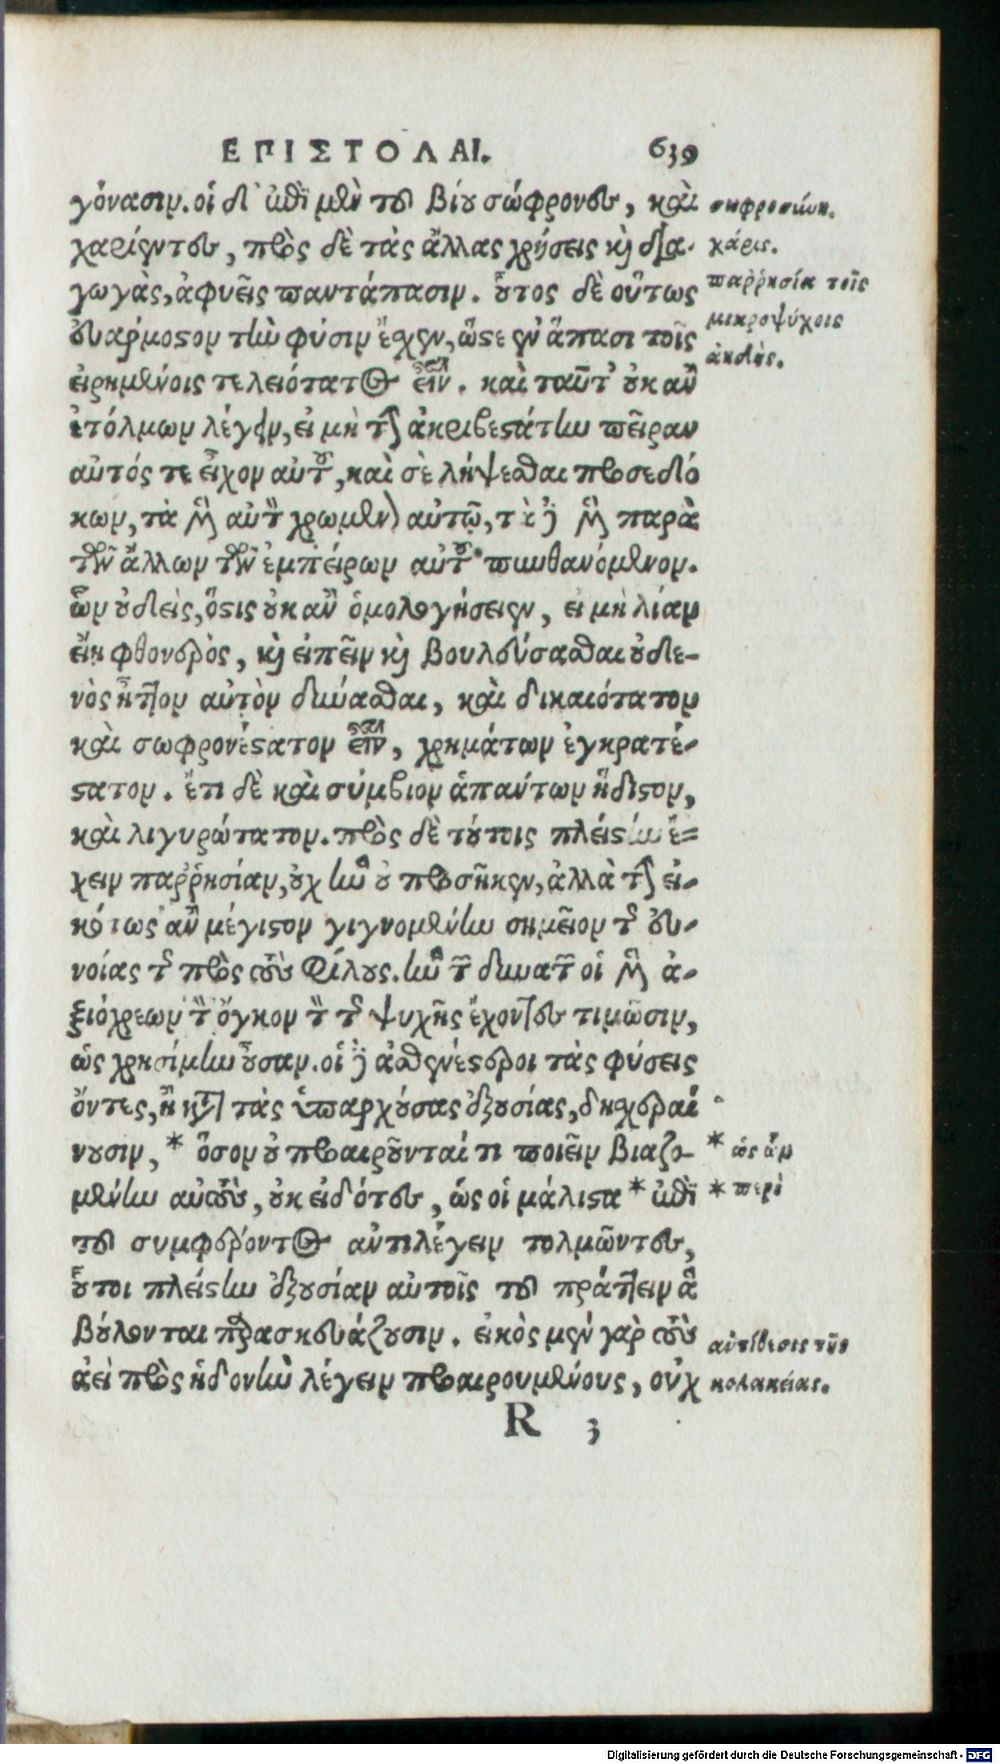 ΕΠΙΣΤΟΛΑΙ. 639
γόνασιν. οἱ δ' ἐπὶ μὲν τοῦ βίου σώφρονες, καὶ
χαρίεντες, πρὸς δὲ τὰς ἄλλας χρήσεις κὶ δια-
γωγὰς, ἀφυεῖς παντάπασιν. οὗτος δὲ οὕτως
εὐάρμοστον τὴν φύσιν ἔχεν, ὥστε ἐν ἅπασι τοῖς
εἰρημένοις τελειότατος εἶναι. καὶ ταῦτ' οὐκ ἂν
ἐτόλμων λέγειν, εἰ μὴ τὴν ἀκριβεστάτην πεῖραν
αὐτός τε εἶχον αὐτοῦ, καὶ σὲ λήψεσθαι προσεδό
κων, τὰ μὲν αὐτὸν χρώμενον αὐτῷ, τὰ δὲ μὲν παρὰ
τῶν ἄλλων τῶν ἐμπείρων αὐτοῦ πυνθανόμενον.
ὧν οὐδεὶς, ὅστις οὐκ ἂν ὁμολογήσειεν, εἰ μὴ λίαν
εἴη φθονερὸς, κὶ εἰπεῖν κὶ βουλεύσασθαι οὐδε-
νὸς ἧττον αὐτὸν δύνασθαι, καὶ δικαιότατον
καὶ σωφρονέστατον εἶναι, χρημάτων ἐγκρατέ-
στατον. ἔτι δὲ καὶ σύμβιον ἁπάντων ἥδιστον,
καὶ λιγυρώτατον. πρὸς δὲ τούτοις πλείστην ἔ=
χειν παῤῥησίαν, οὐχ ἣν οὐ προσῆκεν, ἀλλὰ τὴν εἰ-
κότως ἂν μέγιστον γιγνομένην σημεῖον τῆς εὐ-
νοίας τῆς πρὸς τοὺς φίλους. ἣν τῶν δυναστῶν οἱ μὲν ἀ-
ξιόχρεων τὸν ὄγκον τὸν τῆς ψυχῆς ἔχοντες τιμῶσιν,
ὡς χρησίμην οὖσαν. οἱ δὲ ἀσθενέστεροι τὰς φύσεις
ὄντες, ἢ κατὰ τὰς ὑπαρχούσας ἐξουσίας, δυσχεραί
νουσιν, * ὅσον οὐ προαιροῦνταί τι ποιεῖν βιαζο-
μένην αὐτοὺς, οὐκ εἰδότες, ὡς οἱ μάλιστα * ἐπὶ
τοῦ συμφέροντος ἀντιλέγειν τολμῶντες,
οὗτοι πλείστην ἐξουσίαν αὐτοῖς τοῦ πράττειν ἃ
βούλονται παρασκευάζουσιν. εἰκὸς μὲν γὰρ τοὺς
ἀεὶ πρὸς ἡδονὴν λέγειν προαιρουμένους, οὐχ
R 3
σωφροσύνη.
χάρις.
παῤῥησία τοῖς
μικροψύχοις
ἀηδής.
* ὡς ὧν
* περὶ
ἀντίθεσις τῆς
κολακείας.
Digitalisierung gefördert durch die Deutsche Forschungsgemeinschaft - DFG